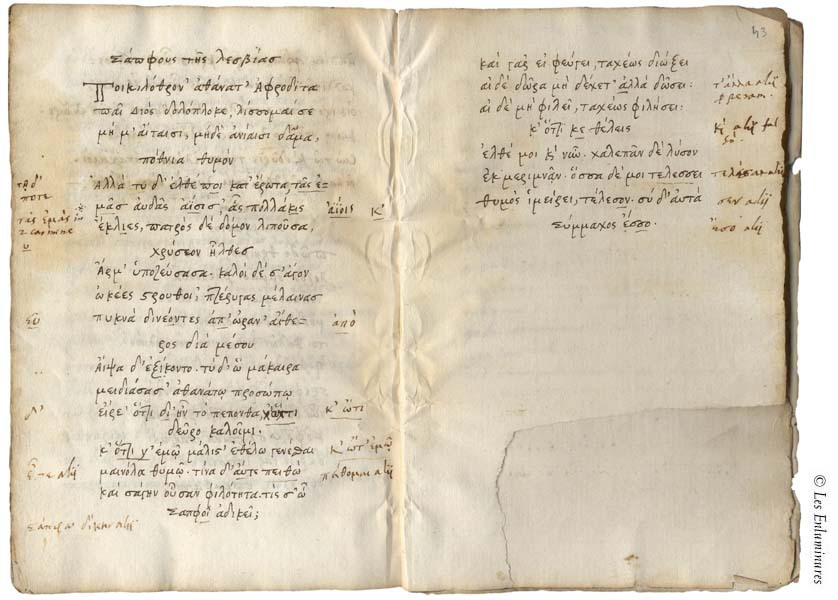 Σαπφους τῆς λεσβίας
Ποικιλόθρον' ἀθάνατ' Ἀφροδίτα
παῖ Διὸς δολόπλοκε, λίσσομαί σε
μή μ' ἄταισι, μηδὲ ἀνίαισι δάμα,
πότνια θυμόν
Ἀλλὰ τυ δ' ἐλθέ ποι κατ' ἔρωτα, τᾶς ἐ-
μᾶς αὐδᾶς ἀΐσις, ἃς πολλάκις ἀΐοις κ'
ἔκλυες, πατρὸς δὲ δόμον λιποῦσα,
χρύσεον ἦλθες
Ἅρμ' ὑποζεύξασα. καλοὶ δέ σ' ἆγον
ὠκέες στρουθοὶ, πτέρυγας μέλαινας
πυκνὰ δινέοντες ἀπ' ὠραν' αἰθέ- ἀπὸ
ρος διὰ μέσου
Αἶψα δ' ἐξίκοντο. τὺ δ' ὦ μάκαιρα
μειδιάσασ' ἀθανάτῳ προσώπῳ
εἴρε' ὅττι δ' ἦν τὸ πέπονθα, κ' ὅττι
δεῦρο καλοῖμι.
κ' ὅττι γ' ἐμῷ μάλιστ' ἐθέλω γενέσθαι
μαινόλᾳ θυμῷ. τίνα δ' αὖτε πειθὼ
καὶ σαγην οὖσαν φιλότητα. τίς σ' ὦ
Σαπφοῖ ἀδικεῖ;
τὰ δ'
ποτε
τᾶς ἐμᾶς
carmine
κ' ὤττι
κ' ὤτ' ἐμῷ
te alij
δίκην alij
43
καὶ γὰρ εἰ φεύγει, ταχέως διώξει
αἰ δὲ δῶρα μὴ δέχετ' ἀλλὰ δώσει·
αἰ δὲ μὴ φιλεῖ, ταχέως φιλήσει·
κ' ὅττι κε θέλεις
ἐλθέ μοι κ' νῦν. χαλεπᾶν δὲ λύσον
ἐκ μεριμνᾶν. ὅσσα δέ μοι τελέσσει
θυμὸς ἱμείρει, τέλεσον. σὺ δ' αὐτὰ
σύμμαχος ἔσσο.
alij
alij
alij
σεν alij
ἦσο alij
© Les Enluminures